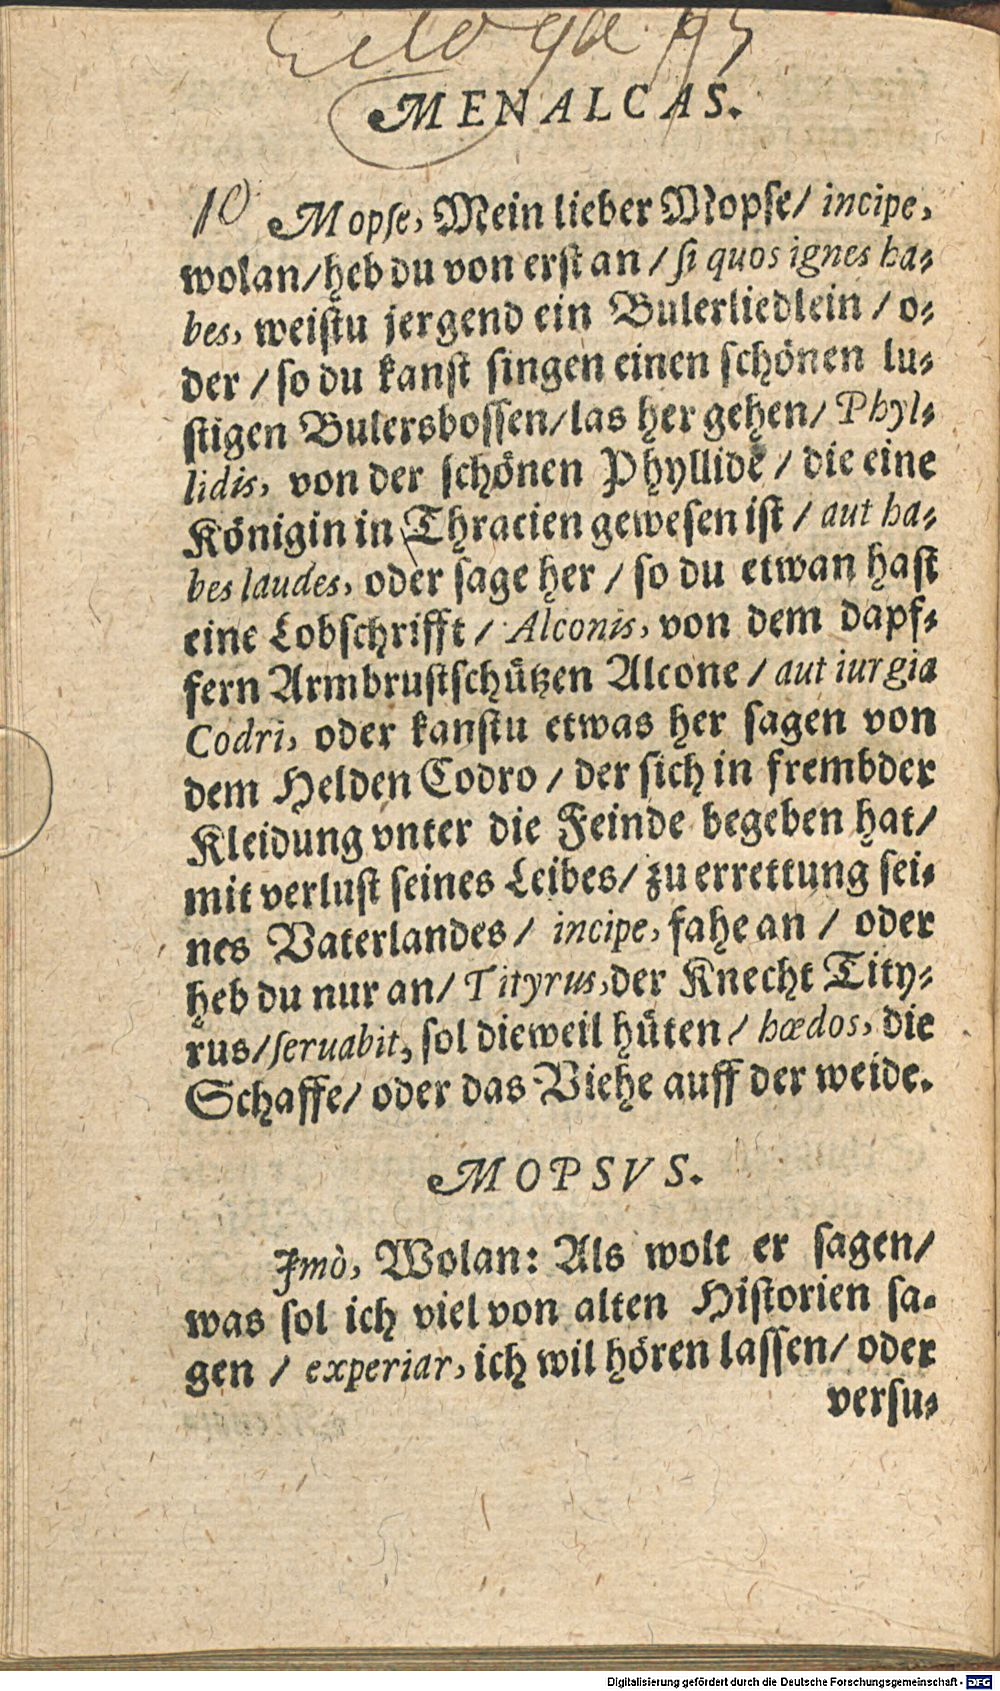 Ecloga
MENALCAS.
10 Mopse, Mein lieber Mopse/ incipe,
wolan/heb du von erst an / si quos ignes ha⸗
bes, weistu jergend ein Bulerliedlein / o⸗
der / so du kanst singen einen schönen lu⸗
stigen Bulersbossen/las her gehen/ Phyl⸗
lidis, von der schönen Phyllide / die eine
Königin in Thracien gewesen ist / aut ha⸗
bes laudes, oder sage her / so du etwan hast
eine Lobschrifft / Alconis, von dem dapf⸗
fern Armbrustschützen Alcone / aut iurgia
Codri, oder kanstu etwas her sagen von
dem Helden Codro / der sich in frembder
Kleidung vnter die Feinde begeben hat/
mit verlust seines Leibes/ zu errettung sei⸗
nes Vaterlandes/ incipe, fahe an / oder
heb du nur an/ Tityrus,der Knecht Tity⸗
rus/seruabit, sol dieweil hüten / hœdos, die
Schaffe/ oder das Viehe auff der weide.
MOPSVS.
Imò, Wolan: Als wolt er sagen/
was sol ich viel von alten Historien sa⸗
gen / experiar, ich wil hören lassen/ oder
versu⸗
Digitalisierung gefördert durch die Deutsche Forschungsgemeinschaft - DFG